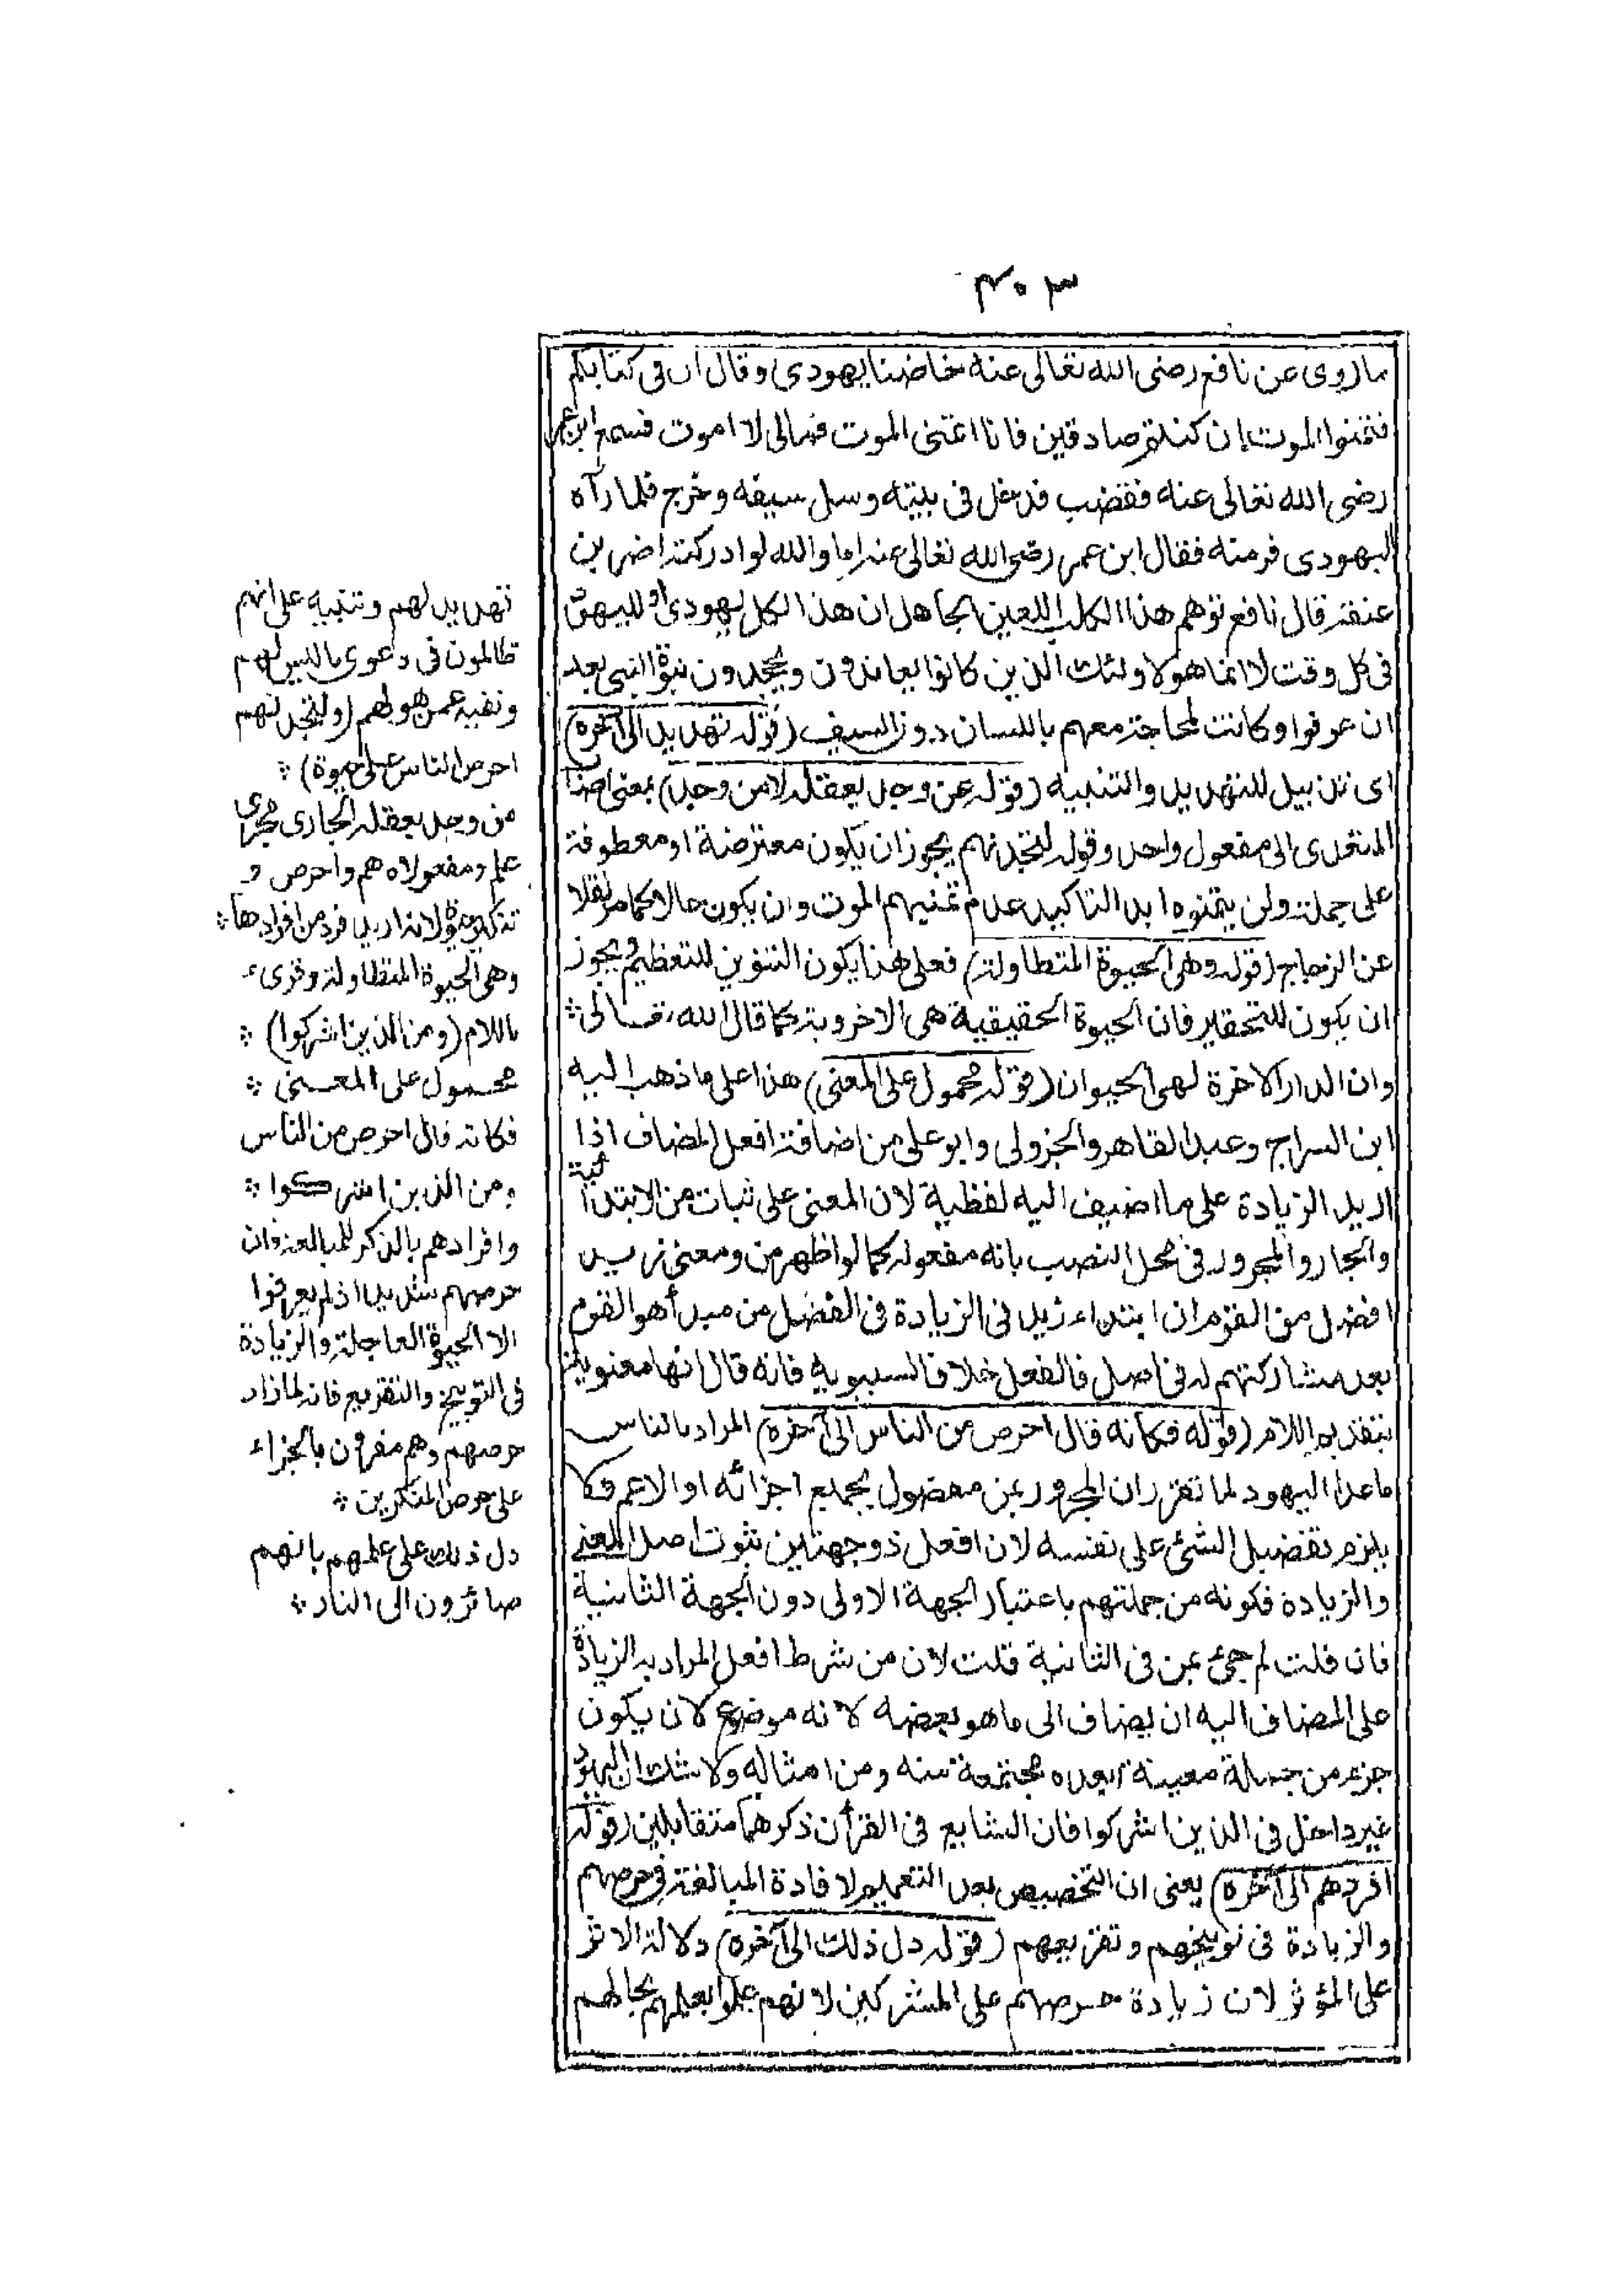 ٣٠٣
ما روى عن نافع رضى الله تعالى عنه خاصمنا يهودى وقال ان فى كتابكم
فتمنوا الموت ان كنتم صادقين فانا اتمنى الموت فمالى لا اموت فسمع ابن عمر
رضى الله تعالى عنه فغضب فدخل فى بيته وسل سيفه وخرج فلما رآه
اليهودى فر منه فقال ابن عمر رضى الله تعالى عنه اما والله لو ادركته لضربت
عنقه قال نافع توهم هذا الكلب اللعين الجاهل ان هذا لكل يهودى او لليهود
فى كل وقت لا انما هو لاولئك الذين كانوا يعاندون ويجحدون نبوة النبى بعد
ان عرفوا وكانت المحاجة معهم باللسان دون السيف (قوله تهديد الى آخره)
اى تذييل للتهديد والتنبيه (قوله من وجد بعقله لا من وجد) بمعنى اصاب
المتعدى الى مفعول واحد وقوله لتجدنهم يجوز ان يكون معترضة او معطوفة
على جملة ولن يتمنوه ابدا لتاكيد عدم تمنيهم الموت وان يكون حالا كما مر نقلا
عن الزجاج (قوله وهى الحيوة المتطاولة) فعلى هذا يكون التنوين للتعظيم ويجوز
ان يكون للتحقير فان الحيوة الحقيقية هى الاخروية كما قال الله تعالى
وان الدار الاخرة لهى الحيوان (قوله محمول على المعنى) هذا على ما ذهب اليه
ابن السراج وعبد القاهر والجزولى وابو على من اضافة افعل المضاف اذا
اريد الزيادة على ما اضيف اليه لفظية لان المعنى على ثبات من الابتدائية
والجار والمجرور فى محل النصب بانه مفعوله كما لو اظهر من ومعنى زيد
افضل من القوم ان ابتداء زيد فى الزيادة فى الفضل من مبدأ هو القوم
بعد مشاركتهم له فى اصل فالفعل خلافا لسيبويه فانه قال انها معنوية
بتقدير اللام (قوله فكانه قال احرص من الناس الى آخره) المراد بالناس
ما عدا اليهود لما تقرر ان المجرور بمن مفضول بجميع اجزائه او الاعم ولا
يلزم تفضيل الشئ على نفسه لان افعل ذو جهتين ثبوت اصل المعنى
والزيادة فكونه من جملتهم باعتبار الجهة الاولى دون الجهة الثانية
فان قلت لم جئ بمن فى الثانية قلت لان من شرط افعل المراد به الزيادة
على المضاف اليه ان يضاف الى ما هو بعضه لانه موضوع لان يكون
جزء من جملة معينة بعده مجتمعة منه ومن امثاله ولا شك ان اليهود
غير داخل فى الذين اشركوا فان الشايع فى القرأن ذكرهما متقابلين (قوله
افردهم الى آخره) يعنى ان التخصيص بعد التعميم لافادة المبالغة فى حرصهم
والزيادة فى توبيخهم وتقريعهم (قوله دل ذلك الى آخره) دلالة الاثر
على المؤثر لان زيادة حرصهم على المشركين لانهم علموا بعلمهم بحالهم
تهديد لهم وتنبيه على انهم
ظالمون فى دعوى ما ليس لهم
ونفيه عمن هو لهم (ولتجدنهم
احرص الناس على حيوة) ؞
من وجد بعقله الجارى مجرى
علم ومفعولاه هم واحرص و
تنكير حيوة لانه اريد فرد من افرادها ؞
وهى الحيوة المتطاولة وقرىء
باللام (ومن الذين اشركوا) ؞
محمول على المعنى ؞
فكانه قال احرص من الناس
ومن الذين اشركوا ؞
وافرادهم بالذكر للمبالغة فان
حرصهم شديد اذ لم يعرفوا
الا الحيوة العاجلة والزيادة
فى التوبيخ والتقريع فانه لما زاد
حرصهم وهم مقرون بالجزاء
على حرص المنكرين ؞
دل ذلك على علمهم بانهم
صائرون الى النار ؞